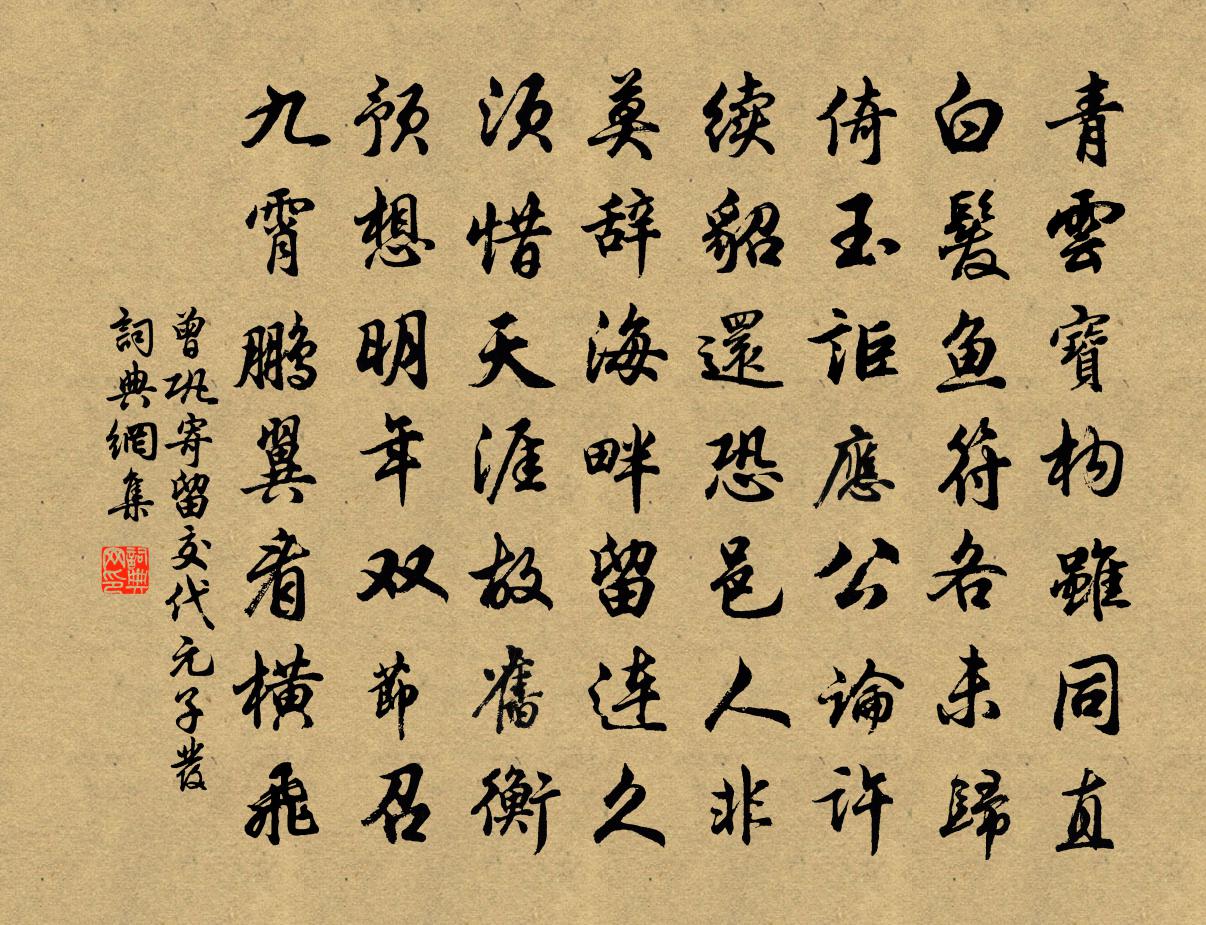 青雲寶构雖同直
白髮鱼符各未歸
倚玉詎應公論許
續貂還恐邑人非
莫辞海畔留連久
须惜天涯故舊衡
预想明年双節召
九霄鵬翼看橫飛
曾巩寄留交代元子發
詞典網集
詞典网印